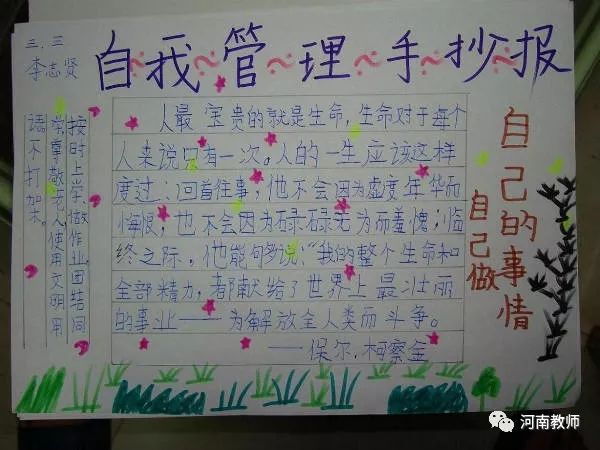 三.三
李志贤
自我管理手抄报
按时上学,做作业,团结同
学,尊敬老人,使用文明用
语,不打架。
人最宝贵的就是生命,生命对于每个
人来说只有一次。人的一生应该这样
度过:回首往事,他不会因为虚度年华而
悔恨,也不会因为碌碌无为而羞愧;临
终之际,他能够说:“我的整个生命和
全部精力,都献给了世界上最壮丽
的事业——为解放全人类而斗争。
——保尔.柯察金
自己的事情
自己做
河南教师